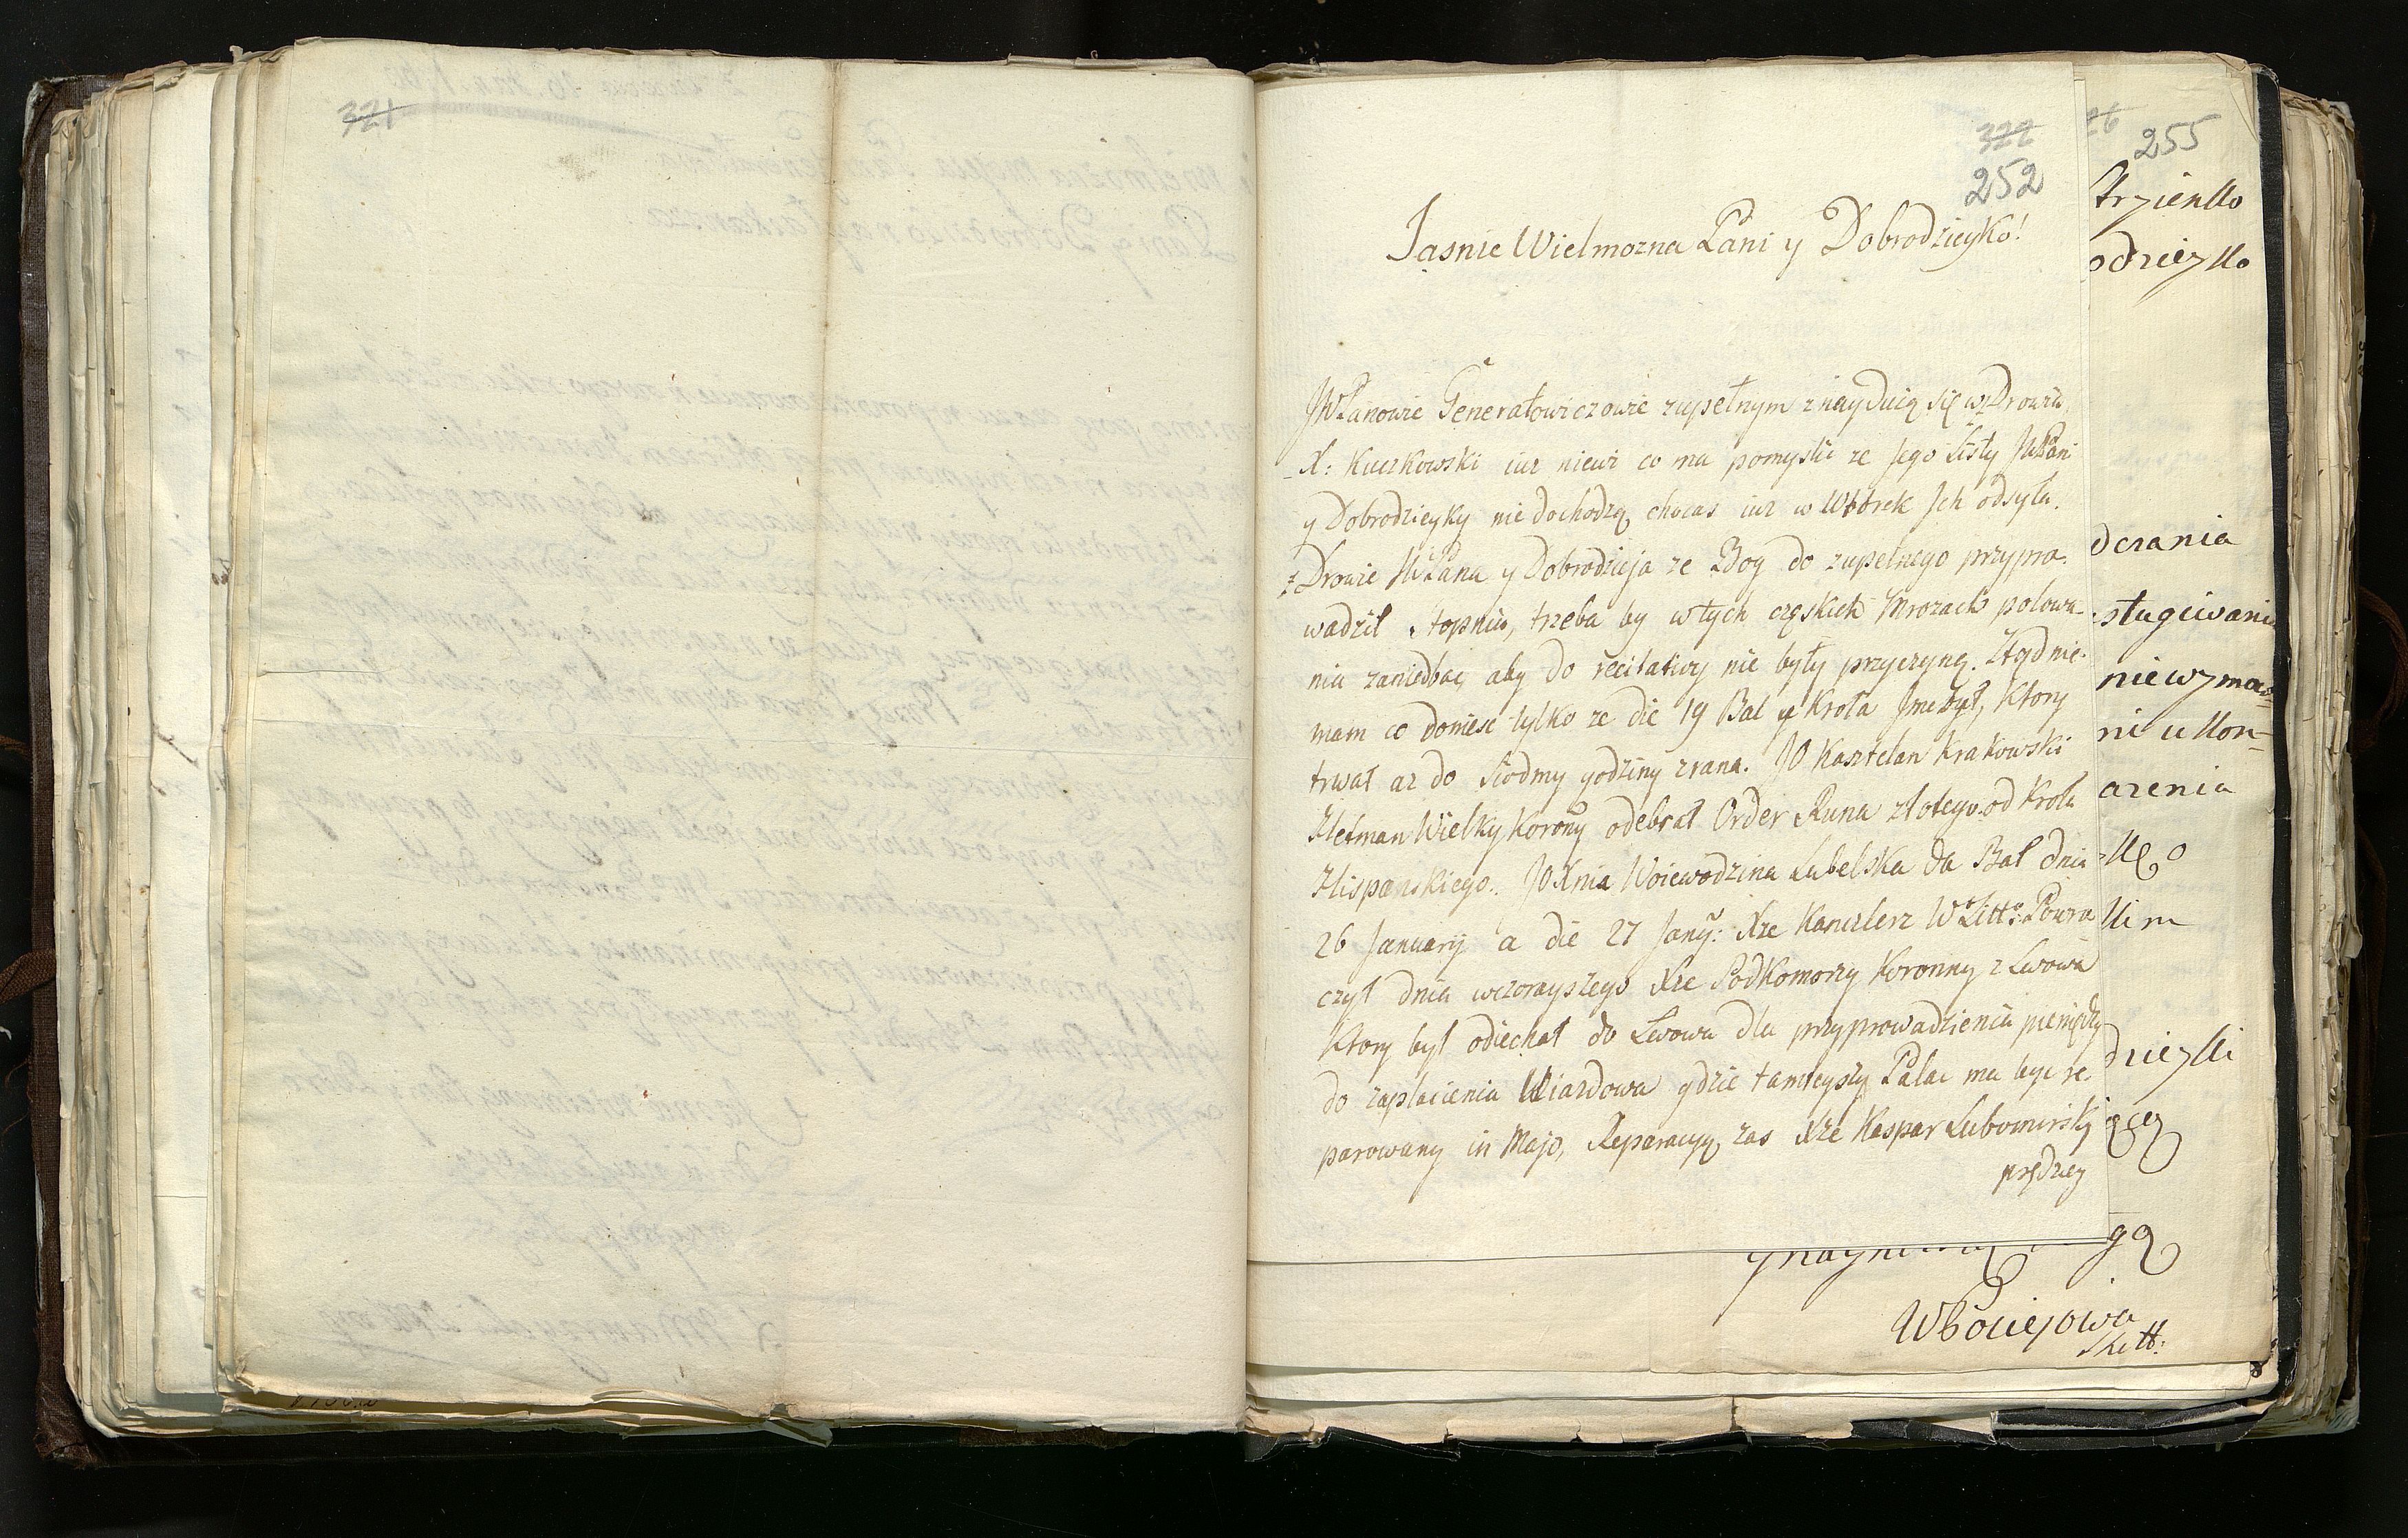 321
322
252
Jasnie Wielmozna Pani y Dobrodzieyko!
JWPanowie Generałowiczowie zupełnym znayduią się wzDrowiu,
X: Kuczkowski iuz niewi co ma pomyslic ze Jego Listy JWPani
y Dobrodzieyky nie dochodzą chocas iuz w Wtorek Jch odsyła.
zDrowie JWPana y Dobrodzieja ze Bog do zupełnego przypro-
wadził stopniu, trzeba by w tych cęskich Mrozach polowa-
nia zaniedbac, aby do recitatiwy nie były przyczyną. Ztąd nie-
mam co doniesc tylko ze die 19 Bal y Krola Jmc był, Ktory
trwał az do Siodmy godziny zrana. JO Kasztelan Krakowski
Hetman Wielky Koronny odebrał Order Runa złotego od Krola
Hispanskiego. JOXnia Woiewodzina Lubelska da Bal dnia
26 January a die 27 Jany: Xze Kanclerz W Litt: Powra
czył dnia wczorayszego Xze PodKomorzy Koronny z Lwowa
Ktory był odiechał do Lwowa dla przyprowadzenia pieniędzy
do zaplacenia Uiazdowa gdzie tamteyszy Palac ma byc re-
parowany in Majo, Reparacyą zas Xze Kaspar Lubomirsky
prędzey
26
255
trzienko
odzieyko
dczania
sługiwania
niewyma
ni ukon=
azenia
kim
dzieyki
ącą
gą